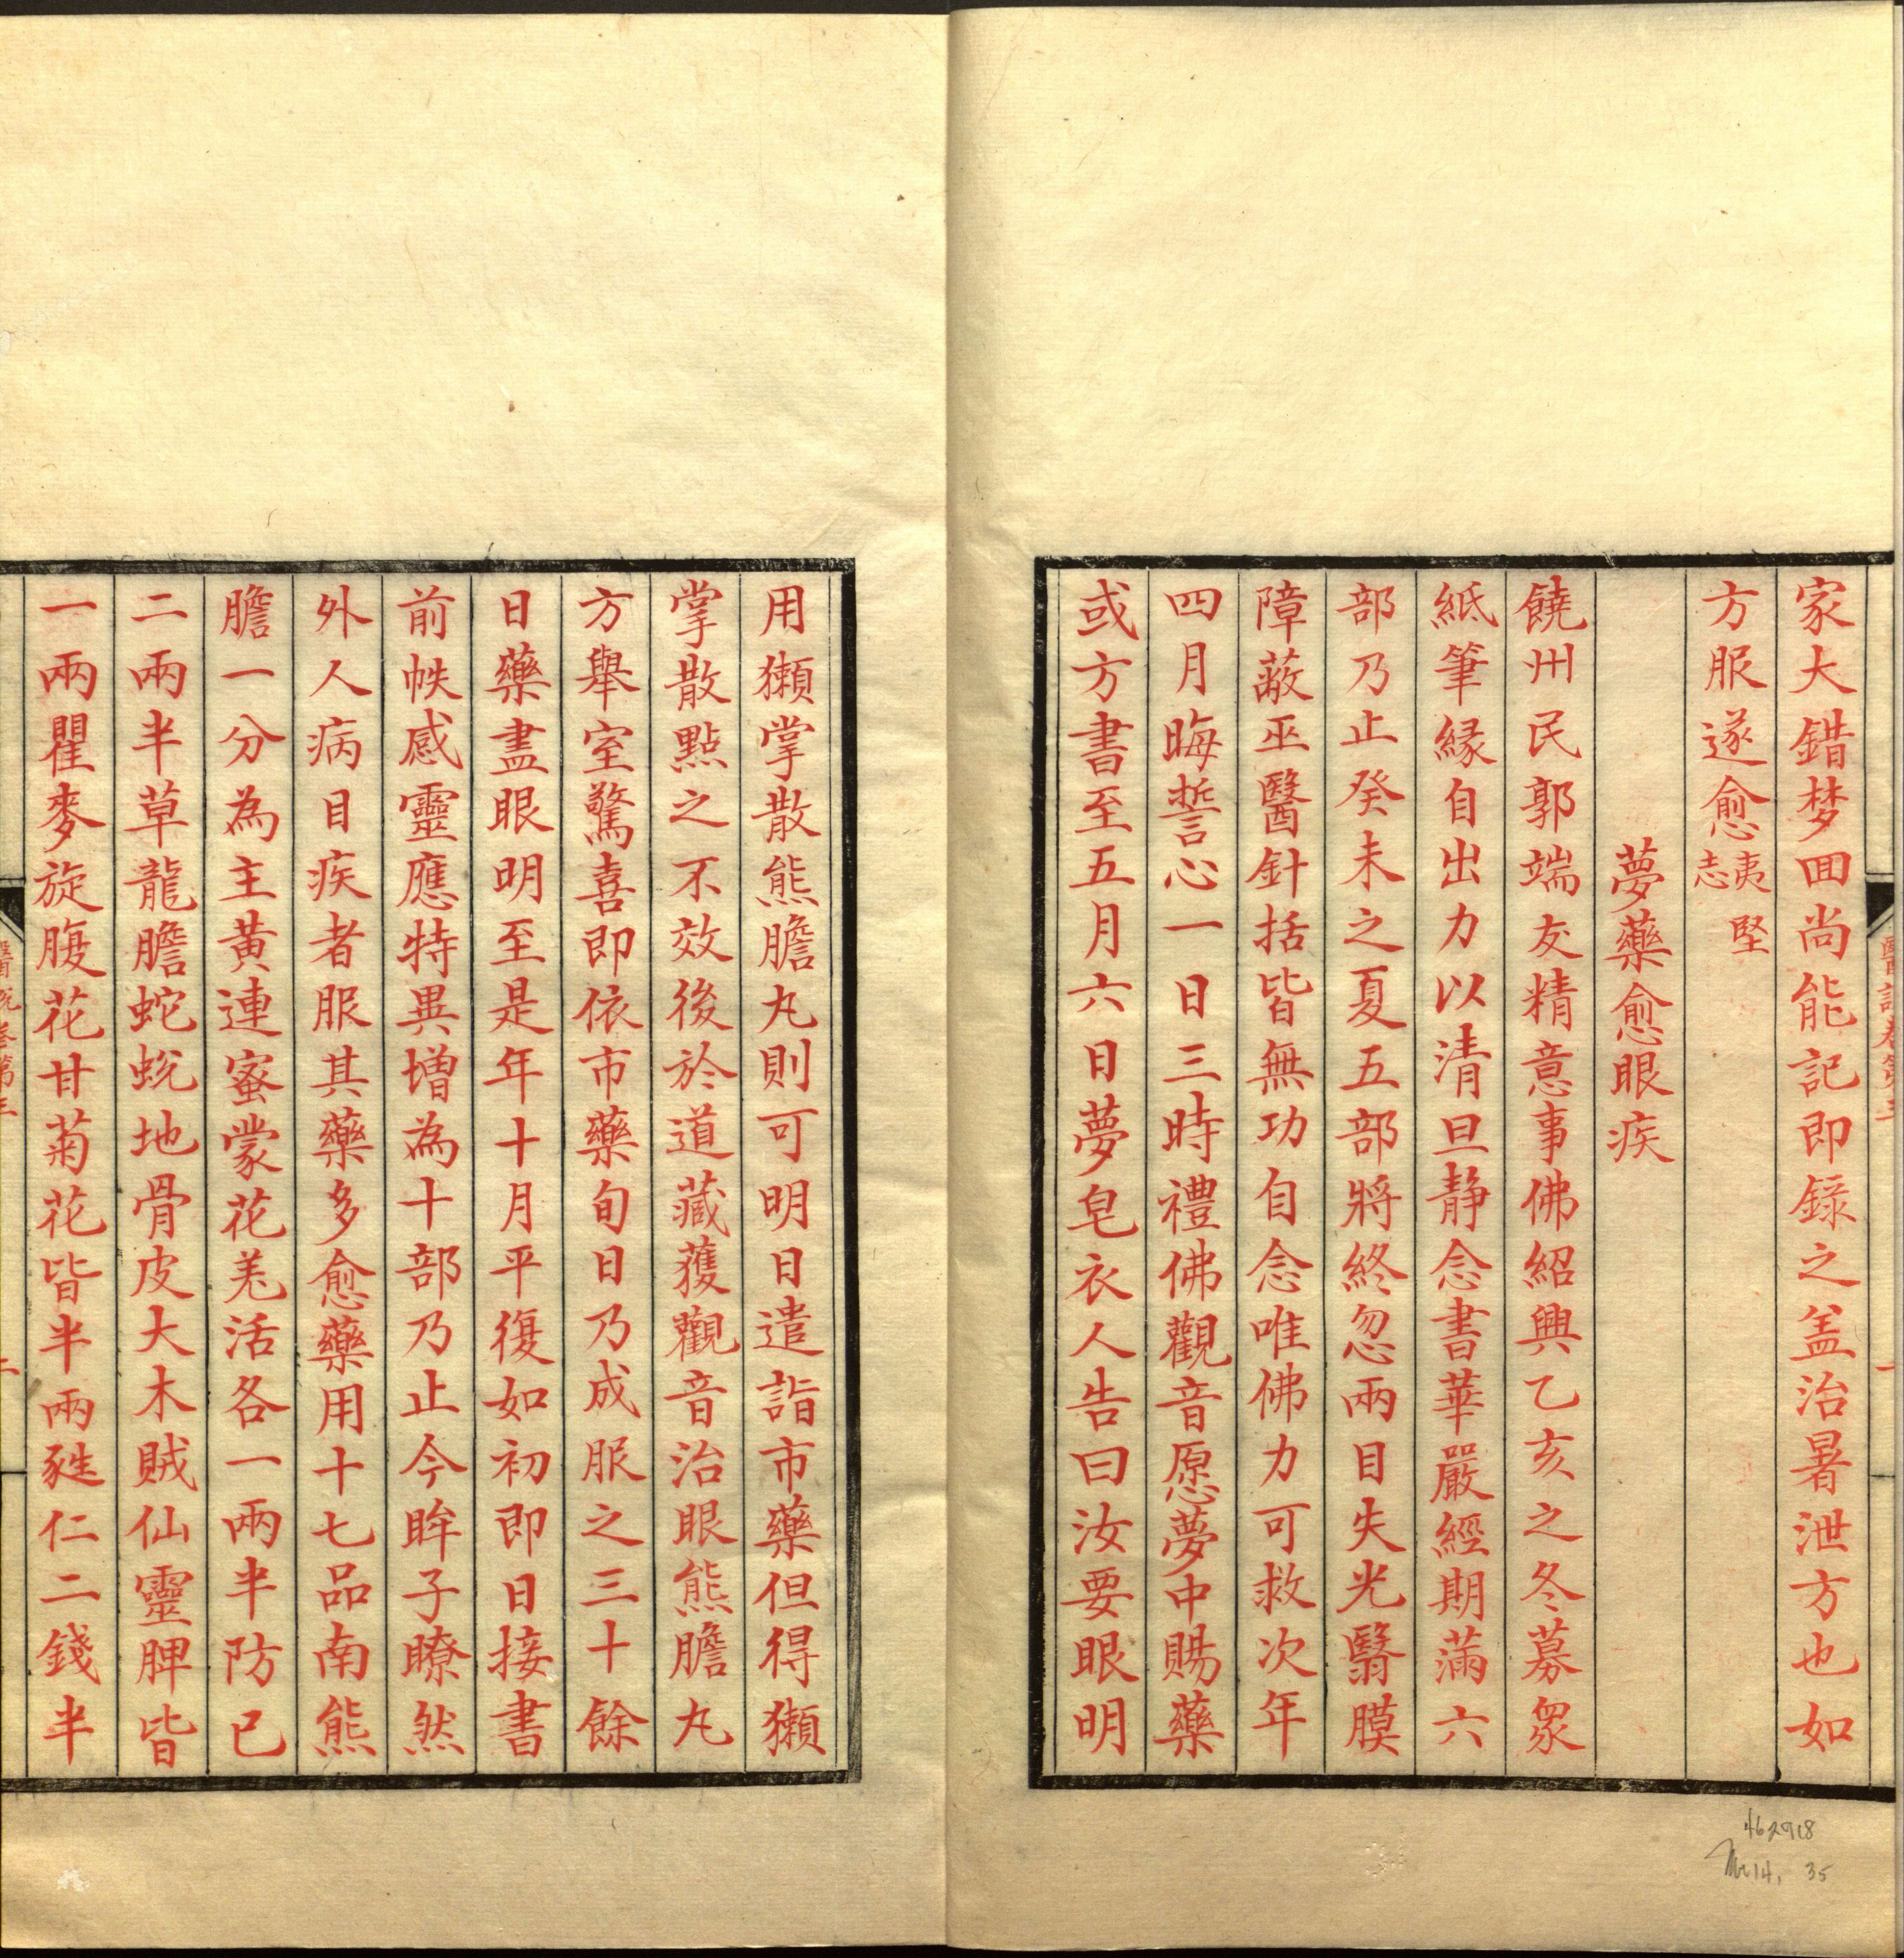 家大錯梦囬尚能記即録之盖治暑泄方也如
方服遂愈夷堅志
夢藥愈眼疾
饒州民郭端友精意事佛紹興乙亥之冬募衆
紙筆縁自出力以清旦静念書華嚴經期滿六
部乃止癸未之夏五部將終忽兩目失光翳膜
障蔽巫醫針括皆無功自念唯佛力可救次年
四月晦誓心一日三時禮佛觀音愿夢中賜藥
或方書至五月六日夢皂衣人告曰汝要眼明
用獺掌散熊膽丸則可明日遣詣市藥但得獺
掌散點之不效後於道藏獲觀音治眼熊膽丸
方舉室驚喜即依市藥旬日乃成服之三十餘
日藥盡眼明至是年十月平復如初即日接書
前帙感靈應特異增為十部乃止今眸子瞭然
外人病目疾者服其藥多愈藥用十七品南熊
膽一分為主黃連蜜蒙花羌活各一兩半防已
二兩半草龍膽蛇蛻地骨皮大木賊仙靈脾皆
一兩瞿麥旋腹花甘菊花皆半兩蕤仁二錢半
462918
35